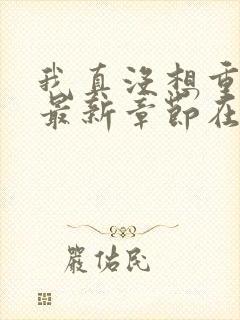 我真没想重
最新章节在
严佑民